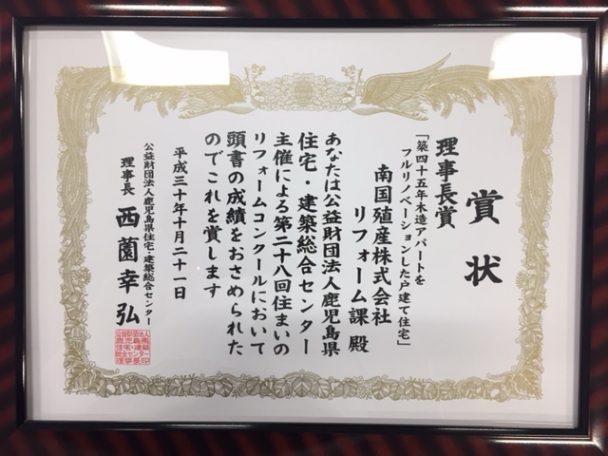 賞状
理事長賞
「築四十五年木造アパートを
フルリノベーションした戸建て住宅」
南国殖産株式会社
リフォーム課 殿
あなたは公益財団法人鹿児島県
住宅・建築総合センター
主催による第二十八回住まいの
リフォームコンクールにおいて
頭書の成績をおさめられた
のでこれを賞します
平成三十年十月二十一日
公益財団法人鹿児島県住宅・建築総合センター
理事長 西薗幸弘